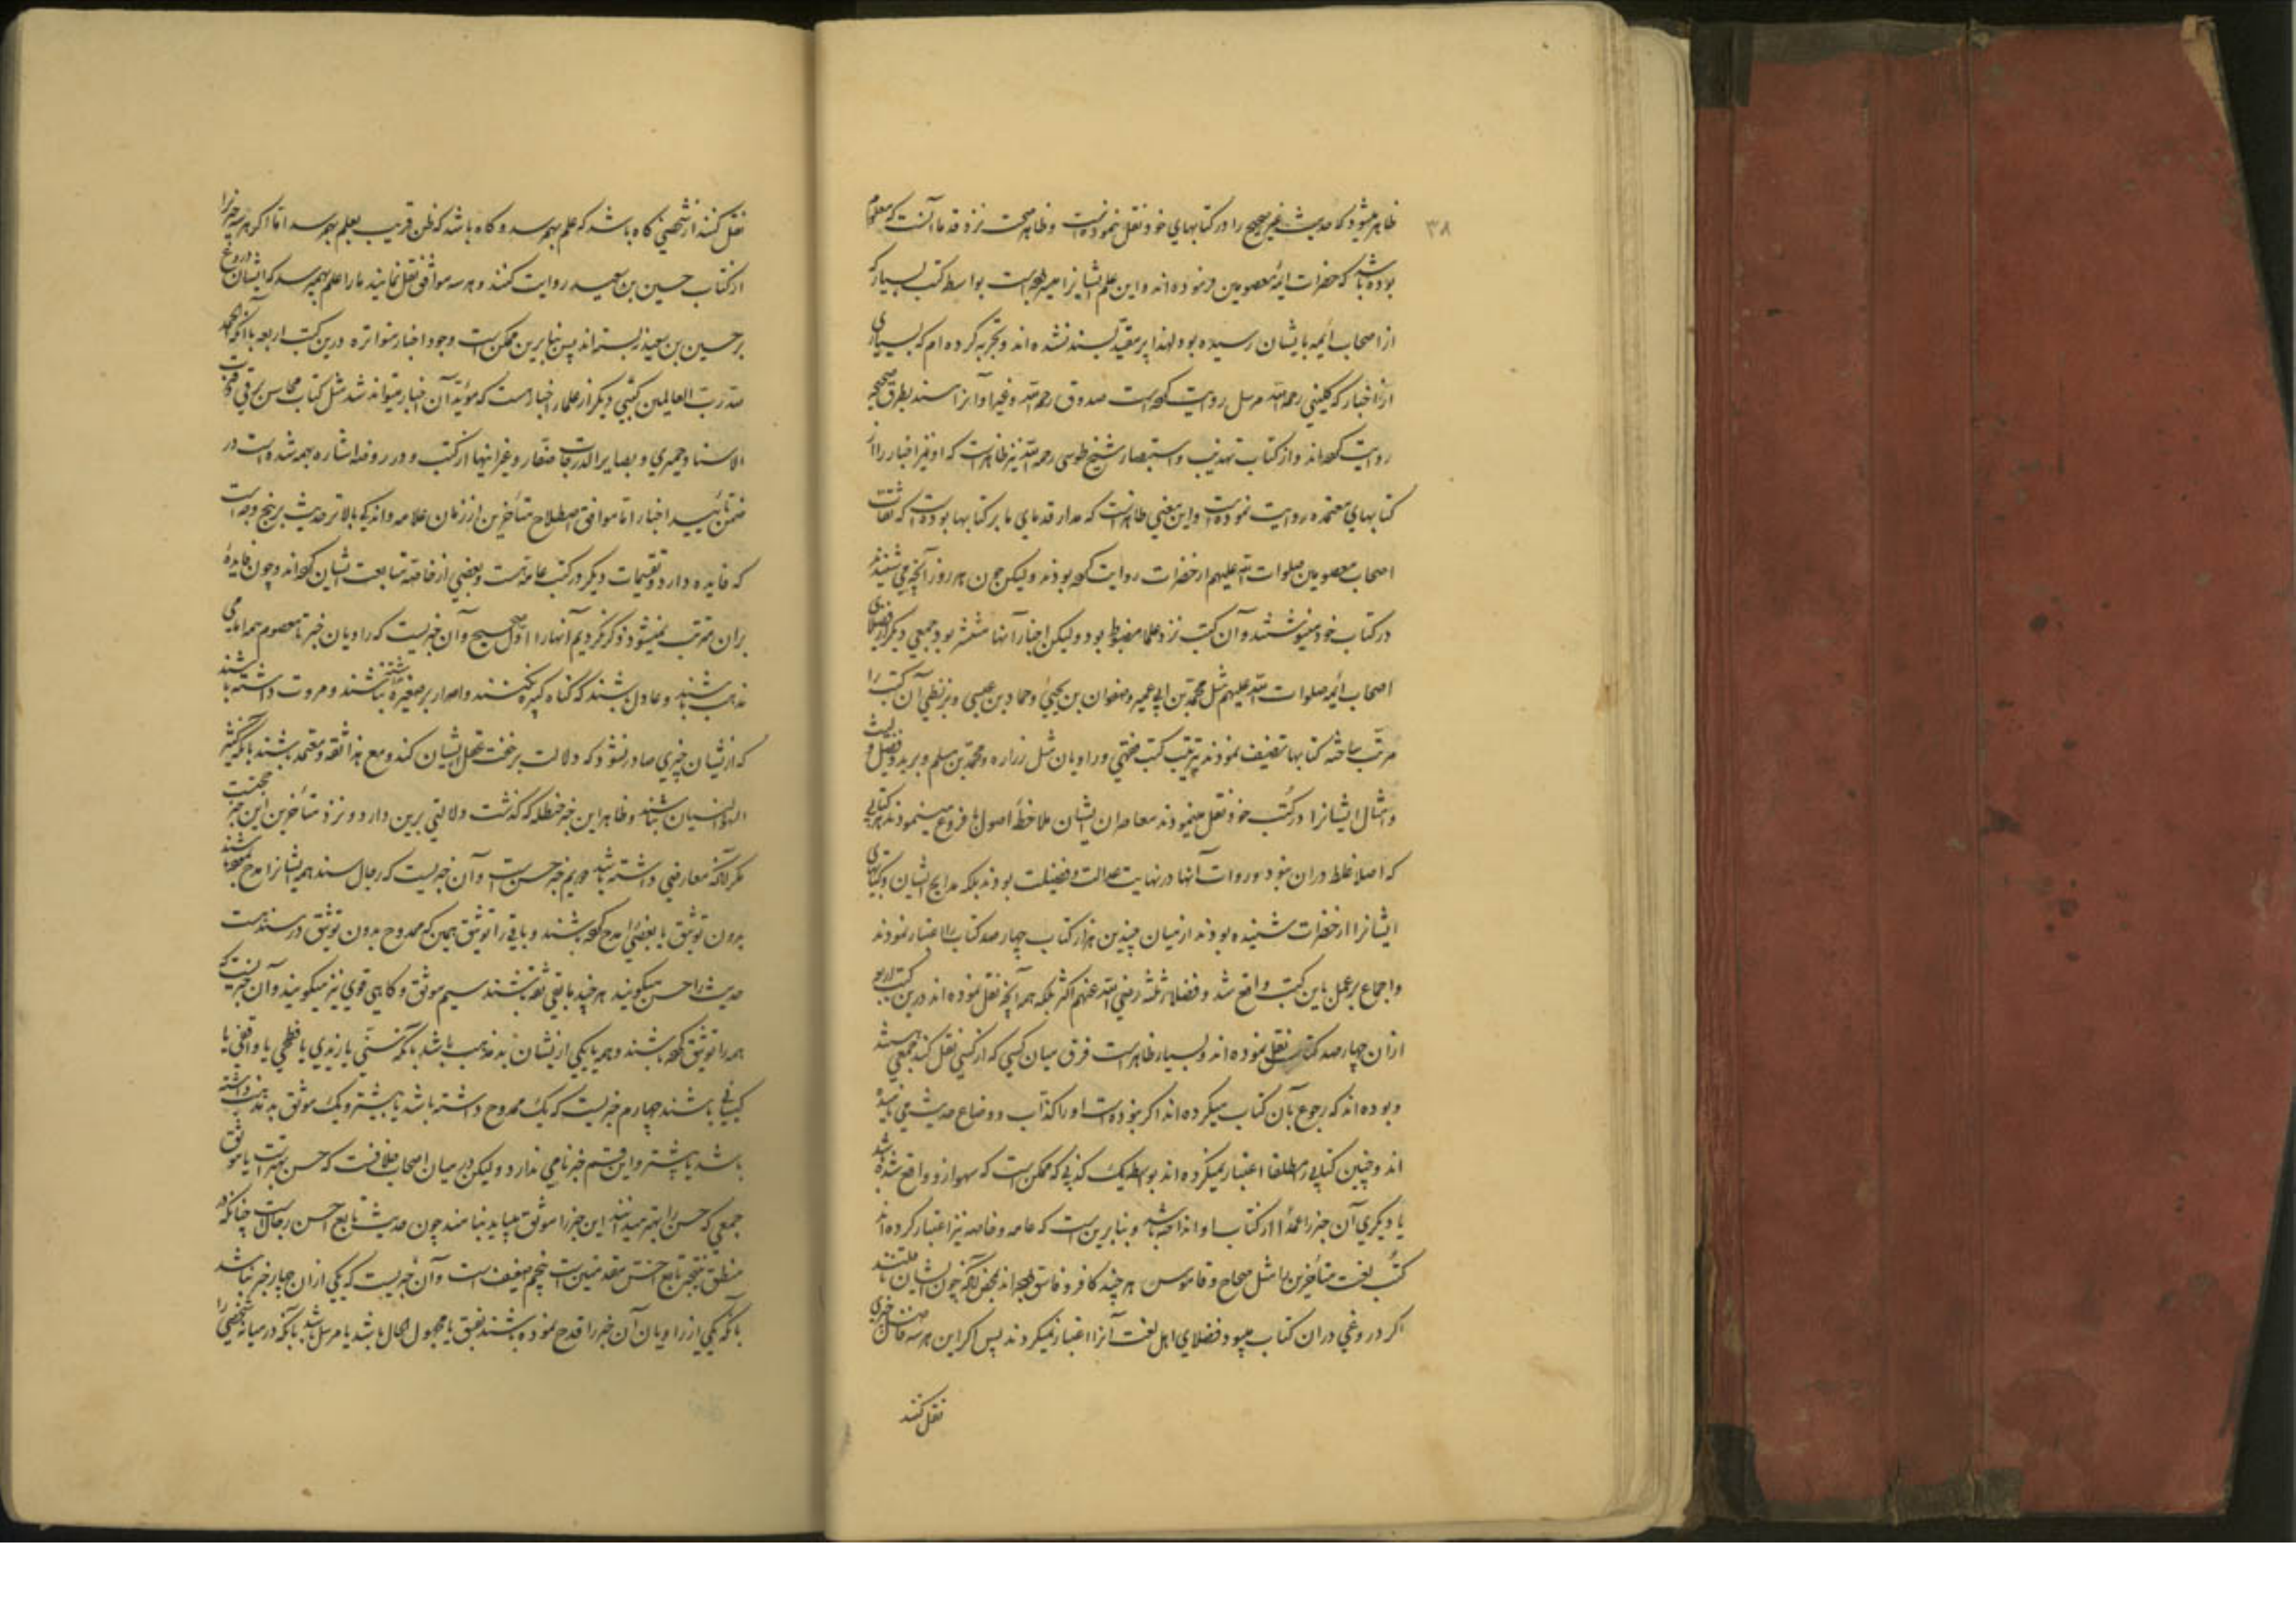 ۳۸
ظاهر میشود که حدیث غیر صحیح را در کتابهای خود نقل ننموده است و ظاهر صحت نزد قدما آنست که معلوم
بوده باشد که حضرات ائمه معصومین فرموده اند و این علم ایشانرا میسر بوده است بواسطه کتب بسیار که
از اصحاب ائمه بایشان رسیده بود و لهذا پر مقید بسند نشده اند و تجربه کرده ام که بسیاری
از اخبار که کلینی رحمه الله مرسل روایت کرده است صدوق رحمه الله و غیر او آنرا مسند بطرق صحیحه
روایت کرده اند و از کتاب تهذیب و استبصار شیخ طوسی رحمه الله نیز ظاهر است که او نیز اخبار را از
کتابهای معتمده روایت نموده است و این معنی ظاهر است که مدار قدمای ما بر کتابها بوده است که ثقات
اصحاب معصومین صلوات الله علیهم از حضرات روایت کرده بودند و لیکن چون هر روز آنچه می شنیدند
در کتاب خود مینوشتند و آن کتب نزد علما مضبوط بود و لیکن اخبار آنها منتشر بود جمعی دیگر از فضلای
اصحاب ائمه صلوات الله علیهم مثل محمد بن ابی عمیر و صفوان بن یحیی و حماد بن عیسی و بزنطی آن کتب را
مرتب ساخته کتابها تصنیف نمودند بترتیب کتب فقهی و راویان مثل زراره و محمد بن مسلم و برید و فضیل و لیث
و امثال ایشانرا در کتب خود نقل مینمودند معاصران ایشان ملاحظه اصول با فروع مینمودند هر کتابی
که اصلا غلط دران نبود و روات آنها در نهایت عدالت و فضیلت بودند بلکه مدایح ایشان و کتابهای
ایشانرا از حضرات شنیده بودند از میان چندین هزار کتاب چهار صد کتاب را اعتبار نمودند
و اجماع بر عمل باین کتب واقع شد و فضلاء ثلثه رضی الله عنهم اکثر بلکه همه آنچه نقل نموده اند درین کتب اربعه
ازان چهار صد کتاب نقل نموده اند و بسیار ظاهر است فرق میان کسی که از کسی نقل کند جمعی
و بوده اند که رجوع بآن کتاب میکرده اند اگر نبوده است او را کذاب و وضاع حدیث می نامیده
اند و چنین کتابی را مطلقا اعتبار نمیکرده اند بواسطه یک کذبی که ممکن است که سهوا ازو واقع شده باشد
یا دیگری آن خبر را عمدا از کتاب او انداخته باشد و بنابرین است که عامه و خاصه نیز اعتبار کرده اند
کتب لغت متأخرین را مثل صحاح و قاموس هر چند کافر و فاسق بوده اند بمحض آنکه چون ایشان
اگر دروغی دران کتاب میبود فضلای اهل لغت آنرا اعتبار نمیکردند پس اگر این هر سه فاضل خبری
نقل کنند
نقل کنند از شخصی گاه باشد که علم بهم رسد و گاه باشد که ظن قریب بعلم بهم رسد اما اگر هر سه خبر را
از کتاب حسین بن سعید روایت کنند و هر سه موافق نقل نمایند ما را علم بهم میرسد که ایشان دروغ
بر حسین بن سعید نبسته اند پس بنابرین ممکن است وجود اخبار متواتره درین کتب اربعه با آنکه الحمد
لله رب العالمین کتبی دیگر از علمای اخبار هست که مؤید آن اخبار میتواند شد مثل کتاب محاسن برقی و قرب
الاسناد حمیری و بصایر الدرجات صفار و غیر اینها از کتب و در روضه اشاره بهمه شده است در
ضمن تأیید اخبار اما موافق اصطلاح متأخرین از زمان علامه و اندکی بالاتر حدیث بر پنج وجه است
که فایده دارد و تقسیمات دیگر در کتب عامه هست و بعضی از خاصه متابعت ایشان کرده اند و چون فایده
بران مترتب نمیشود ذکر نکردیم آنها را اول صحیح و آن خبریست که راویان خبر تا معصوم همه امامی
مذهب باشند و عادل باشند که گناه کبیره نکنند و اصرار بر صغیره نداشته باشند و مروت داشته باشند
که ازیشان چیزی صادر نشود که دلالت بر خفت عقل ایشان کند و مع هذا ثقه و معتمد باشند بآنکه کثیر
السهو و النسیان نباشند و ظاهر این خبر حنظله که گذشت دلالتی برین دارد و نزد متأخرین این خبر حجتست
مگر آنکه معارضی داشته باشد دویم خبر حسن است و آن خبریست که رجال سند همه ایشانرا مدح کرده باشند
بدون توثیق یا بعضی را مدح کرده باشند و باقی را توثیق همین که ممدوح بدون توثیق در سند هست
حدیث را حسن میگویند هر چند باقی ثقه باشند سیم موثق و گاهی قوی نیز میگویند و آن خبریست که
همه را توثیق کرده باشند و همه یا یکی ازیشان بد مذهب باشد بآنکه سنی یا زیدی یا فطحی یا واقفی یا
کیسانی باشند چهارم خبریست که یک ممدوح داشته باشد یا بیشتر و یک موثق بد مذهب داشته
باشد یا بیشتر و این قسم خبر نامی ندارد و لیکن در میان اصحاب خلافست که حسن بهتر است یا موثق
جمعی که حسن را بهتر میدانند این خبر را موثق میباید بنامند چون حدیث تابع اخس رجالست چنانکه در
منطق نتیجه تابع اخس مقدمتین است پنجم ضعیف است و آن خبریست که یکی ازان چهار خبر نباشد
بآنکه یکی از راویان آن خبر را قدح نموده باشند بفسق یا مجهول الحال باشد یا مرسل باشد بآنکه در میانه شخصی را